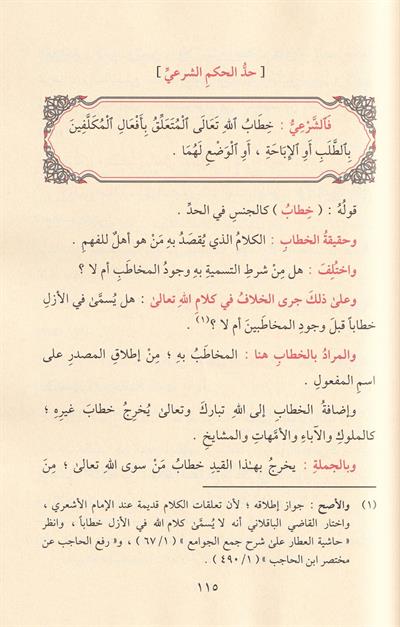 [ حدُّ الحكمِ الشرعيِّ ]
فَالشَّرْعِيُّ : خِطَابُ اللهِ تَعَالَى الْمُتَعَلِّقُ بِأَفْعَالِ الْمُكَلَّفِينَ
بِالطَّلَبِ أَوِ الإِبَاحَةِ ، أَوِ الْوَضْعِ لَهُمَا .
قولُهُ : ( خِطابُ ) كالجنسِ في الحدِّ .
وحقيقةُ الخطابِ : الكلامُ الذي يُقصَدُ بهِ مَنْ هو أهلٌ للفهمِ .
واختُلِفَ : هل مِنْ شرطِ التسميةِ بهِ وجودُ المخاطَبِ أم لا ؟
وعلىٰ ذلكَ جرى الخلافُ في كلامِ اللهِ تعالىٰ : هل يُسمَّىٰ في الأزلِ
خطاباً قبلَ وجودِ المخاطَبينَ أم لا ؟(١) .
والمرادُ بالخطابِ هنا : المخاطَبُ بهِ ؛ مِنْ إطلاقِ المصدرِ على
اسمِ المفعولِ .
وإضافةُ الخطابِ إلى اللهِ تباركَ وتعالىٰ يُخرِجُ خطابَ غيرِهِ ؛
كالملوكِ والآباءِ والأمَّهاتِ والمشايخِ .
وبالجملةِ : يخرجُ بهـٰذا القيدِ خطابُ مَنْ سوى اللهِ تعالىٰ ؛ مِنَ
(١) والأصح : جواز إطلاقه ؛ لأن تعلقات الكلام قديمة عند الإمام الأشعري ،
واختار القاضي الباقلاني أنه لا يُسمَّىٰ كلام الله في الأزل خطاباً ، وانظر
« حاشية العطار علىٰ شرح جمع الجوامع » ( ٦٧/١ ) ، و« رفع الحاجب عن
مختصر ابن الحاجب » ( ٤٩٠/١ ) .
١١٥